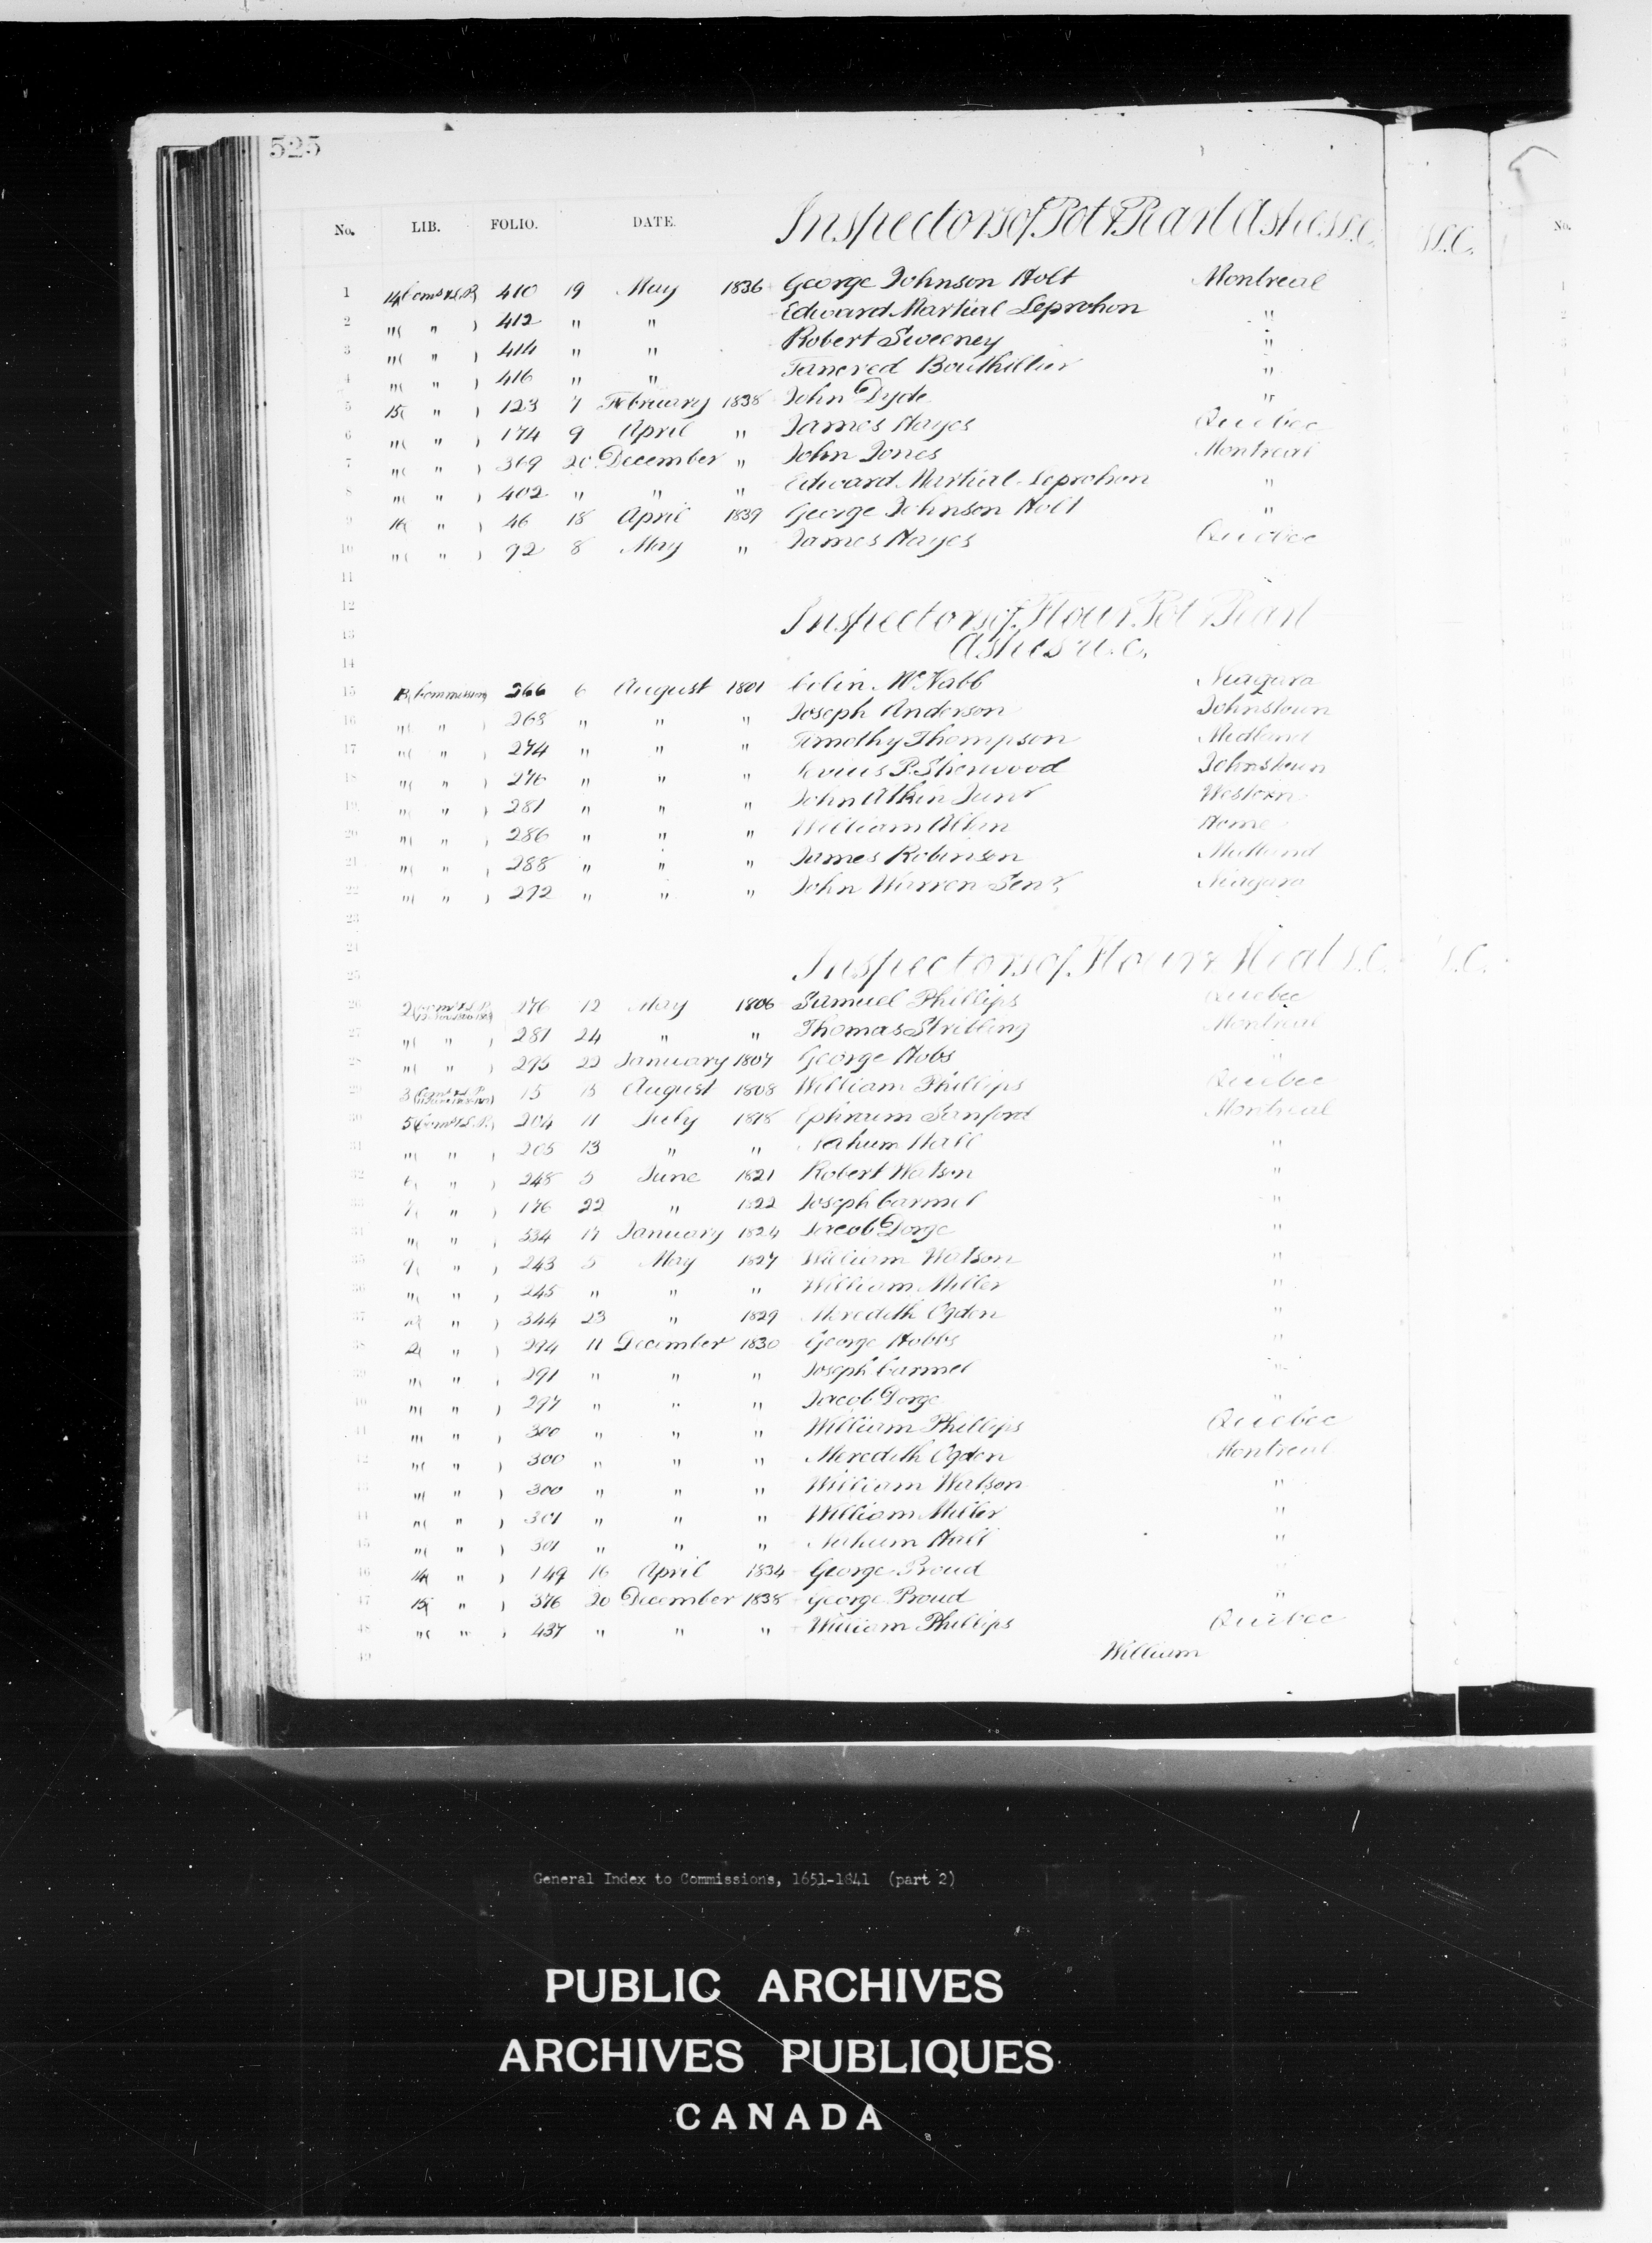 525
No. LIB. FOLIO. DATE. Inspectors of Pot & Pearl Ashes L.C.
1 14 (Comns L.P.) 410 19 May 1836 George Johnson Holt Montreal
2 " ( " ) 412 " " Edward Martial Leprohon "
3 " ( " ) 414 " " Robert Sweeney "
4 " ( " ) 416 " " Tancred Bouthillier "
5 15 ( " ) 123 7 February 1838 John Dyde "
6 " ( " ) 174 9 April " James Hayes Quebec
7 " ( " ) 369 20 December " John Jones Montreal
8 " ( " ) 402 " " " Edward Martial Leprohon "
9 16 ( " ) 46 18 April 1839 George Johnson Holt "
10 " ( " ) 92 8 May " James Hayes Quebec
11
12 Inspectors of Flour Pot & Pearl
13 Ashes U.C.
14
15 B (Commissions) 266 6 August 1801 Colin McNabb Niagara
16 " ( " ) 268 " " " Joseph Anderson Johnstown
17 " ( " ) 274 " " " Timothy Thompson Midland
18 " ( " ) 276 " " " Levius P. Sherwood Johnstown
19 " ( " ) 281 " " " John Askin Junr Western
20 " ( " ) 286 " " " William Allan Home
21 " ( " ) 288 " " " James Robinson Midland
22 " ( " ) 292 " " " John Warren Senr Niagara
23
24 Inspectors of Flour & Meal L.C.
25
26 2 276 12 May 1806 Samuel Phillips Quebec
27 " ( " ) 281 24 " " Thomas Stribling Montreal
28 " ( " ) 295 22 January 1807 George Hobs "
29 3 15 15 August 1808 William Phillips Quebec
30 5 (Comns L.P.) 204 11 July 1818 Ephraim Sanford Montreal
31 " ( " ) 205 13 " " Nahum Hall "
32 6 ( " ) 248 5 June 1821 Robert Watson "
33 7 ( " ) 176 22 " 1822 Joseph Carmel "
34 " ( " ) 534 17 January 1824 Jacob Dorge "
35 9 ( " ) 243 5 May 1827 William Watson "
36 " ( " ) 245 " " " William Miller "
37 ( " ) 344 23 " 1829 Meredith Ogden "
38 ( " ) 294 11 December 1830 George Hobbs "
39 " ( " ) 291 " " " Joseph Carmel "
40 " ( " ) 297 " " " Jacob Dorge "
41 " ( " ) 300 " " " William Phillips Quebec
42 " ( " ) 300 " " " Meredith Ogden Montreal
43 " ( " ) 300 " " " William Watson "
44 " ( " ) 301 " " " William Miller "
45 " ( " ) 301 " " " Nahum Hall "
46 14 ( " ) 149 16 April 1834 George Proud "
47 15 ( " ) 376 20 December 1838 George Proud "
48 " ( " ) 437 " " " William Phillips Quebec
49 William
General Index to Commissions, 1651-1841 (part 2)
PUBLIC ARCHIVES
ARCHIVES PUBLIQUES
CANADA